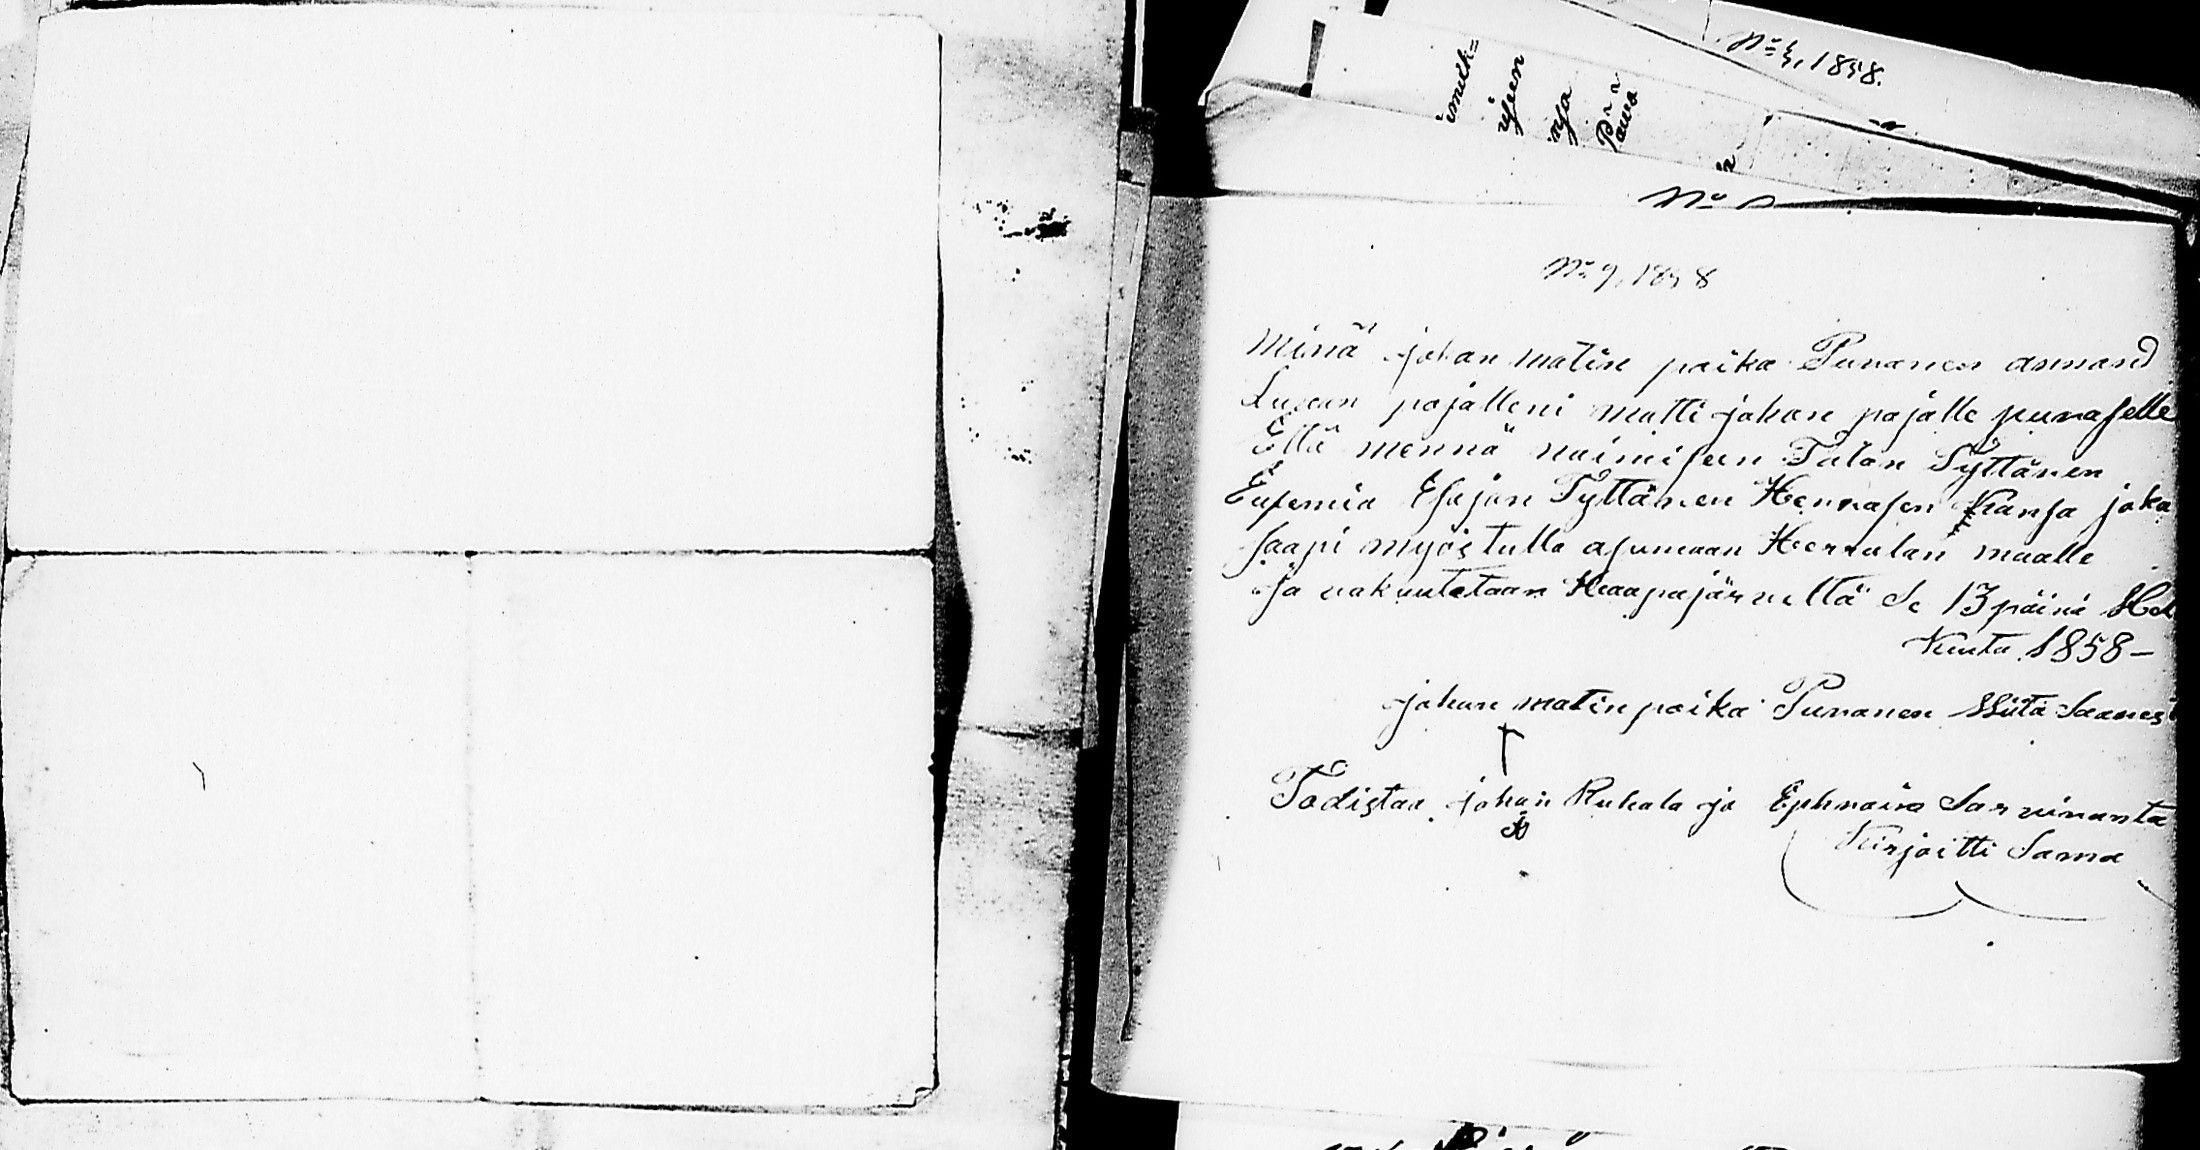 No 4, 1858.
No 9, 1858
Minä johan matin poika Punanen annand
Luvan pojalleni matti johan pojalle punaselle
Että mennä naimiseen Talon Tyttären
Eufemia Esajan Tyttären Hennasen Kansa joka
saapi myös tulla asumaan Herralan maalle
ja vakuutetaan Haapajärveltä Se 13 päivä Hel
Kuuta 1858 –
johan matin poika Punanen Viita Saares
Todistaa johan Ruhala ja Ephraim Sarvinanta
Kirjoitti Sama